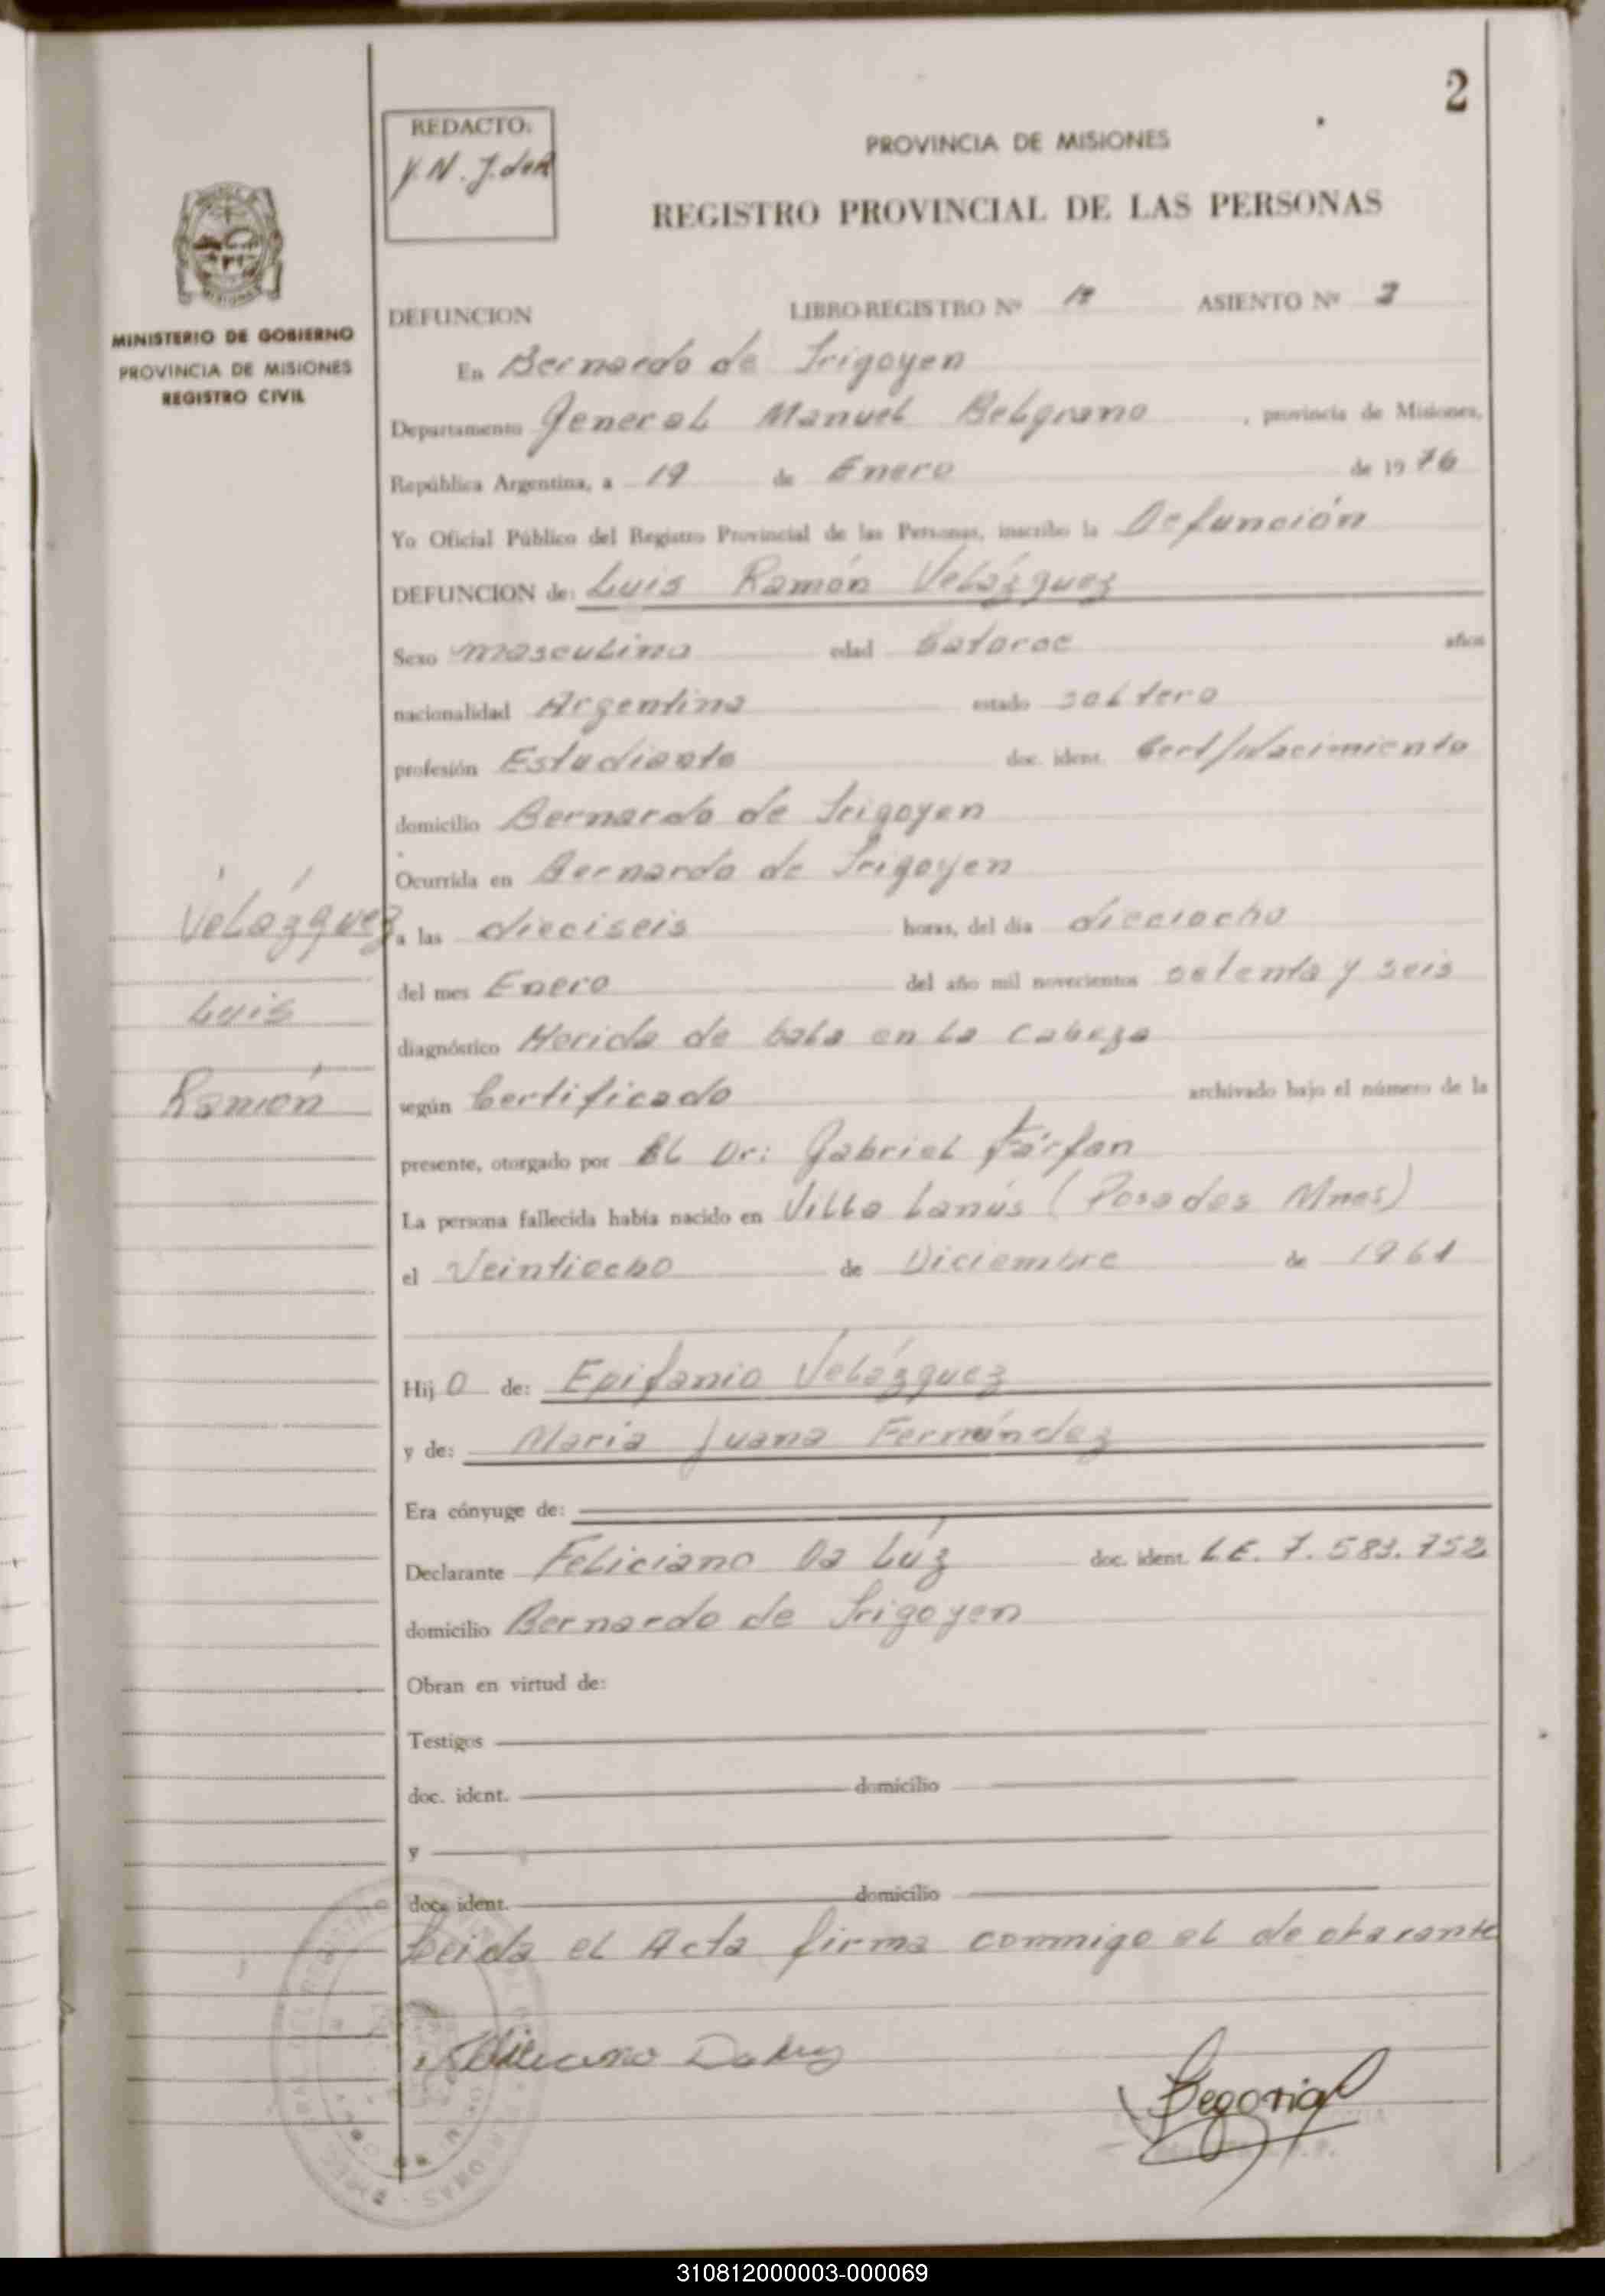 2
REDACTO:
PROVINCIA DE MISIONES
REGISTRO PROVINCIAL DE LAS PERSONAS
MINISTERIO DE GOBIERNO
PROVINCIA DE MISIONES
REGISTRO CIVIL
DEFUNCION LIBRO-REGISTRO Nº ASIENTO Nº
En Bernardo de Irigoyen
Departamento General Manuel Belgrano , provincia de Misiones,
República Argentina, a 19 de Enero de 1976
Yo Oficial Público del Registro Provincial de las Personas, inscribo la Defunción
DEFUNCION de: Luis Ramón Velázquez
Sexo masculino edad Catorce años
nacionalidad Argentina estado soltero
profesión Estudiante doc. ident. Cert/Nacimiento
domicilio Bernardo de Irigoyen
Ocurrida en Bernardo de Irigoyen
Velázquez
Luis
Ramón
a las dieciseis horas, del día dieciocho
del mes Enero del año mil novecientos setenta y seis
diagnóstico Herida de bala en la cabeza
según Certificado archivado bajo el número de la
presente, otorgado por El Dr: Gabriel Fárfan
La persona fallecida había nacido en Villa Lanús (Posadas Mnes)
el Veintiocho de Diciembre de 1961
Hijo de: Epifanio Velázquez
y de: Maria Juana Fernández
Era cónyuge de:
Declarante Feliciano Da Lúz doc. ident. L.E. 7.583.752
domicilio Bernardo de Irigoyen
Obran en virtud de:
Testigos
doc. ident. domicilio
y
doc. ident. domicilio
Leida el Acta firma conmigo el declarante
Feliciano Da Luz
310812000003-000069